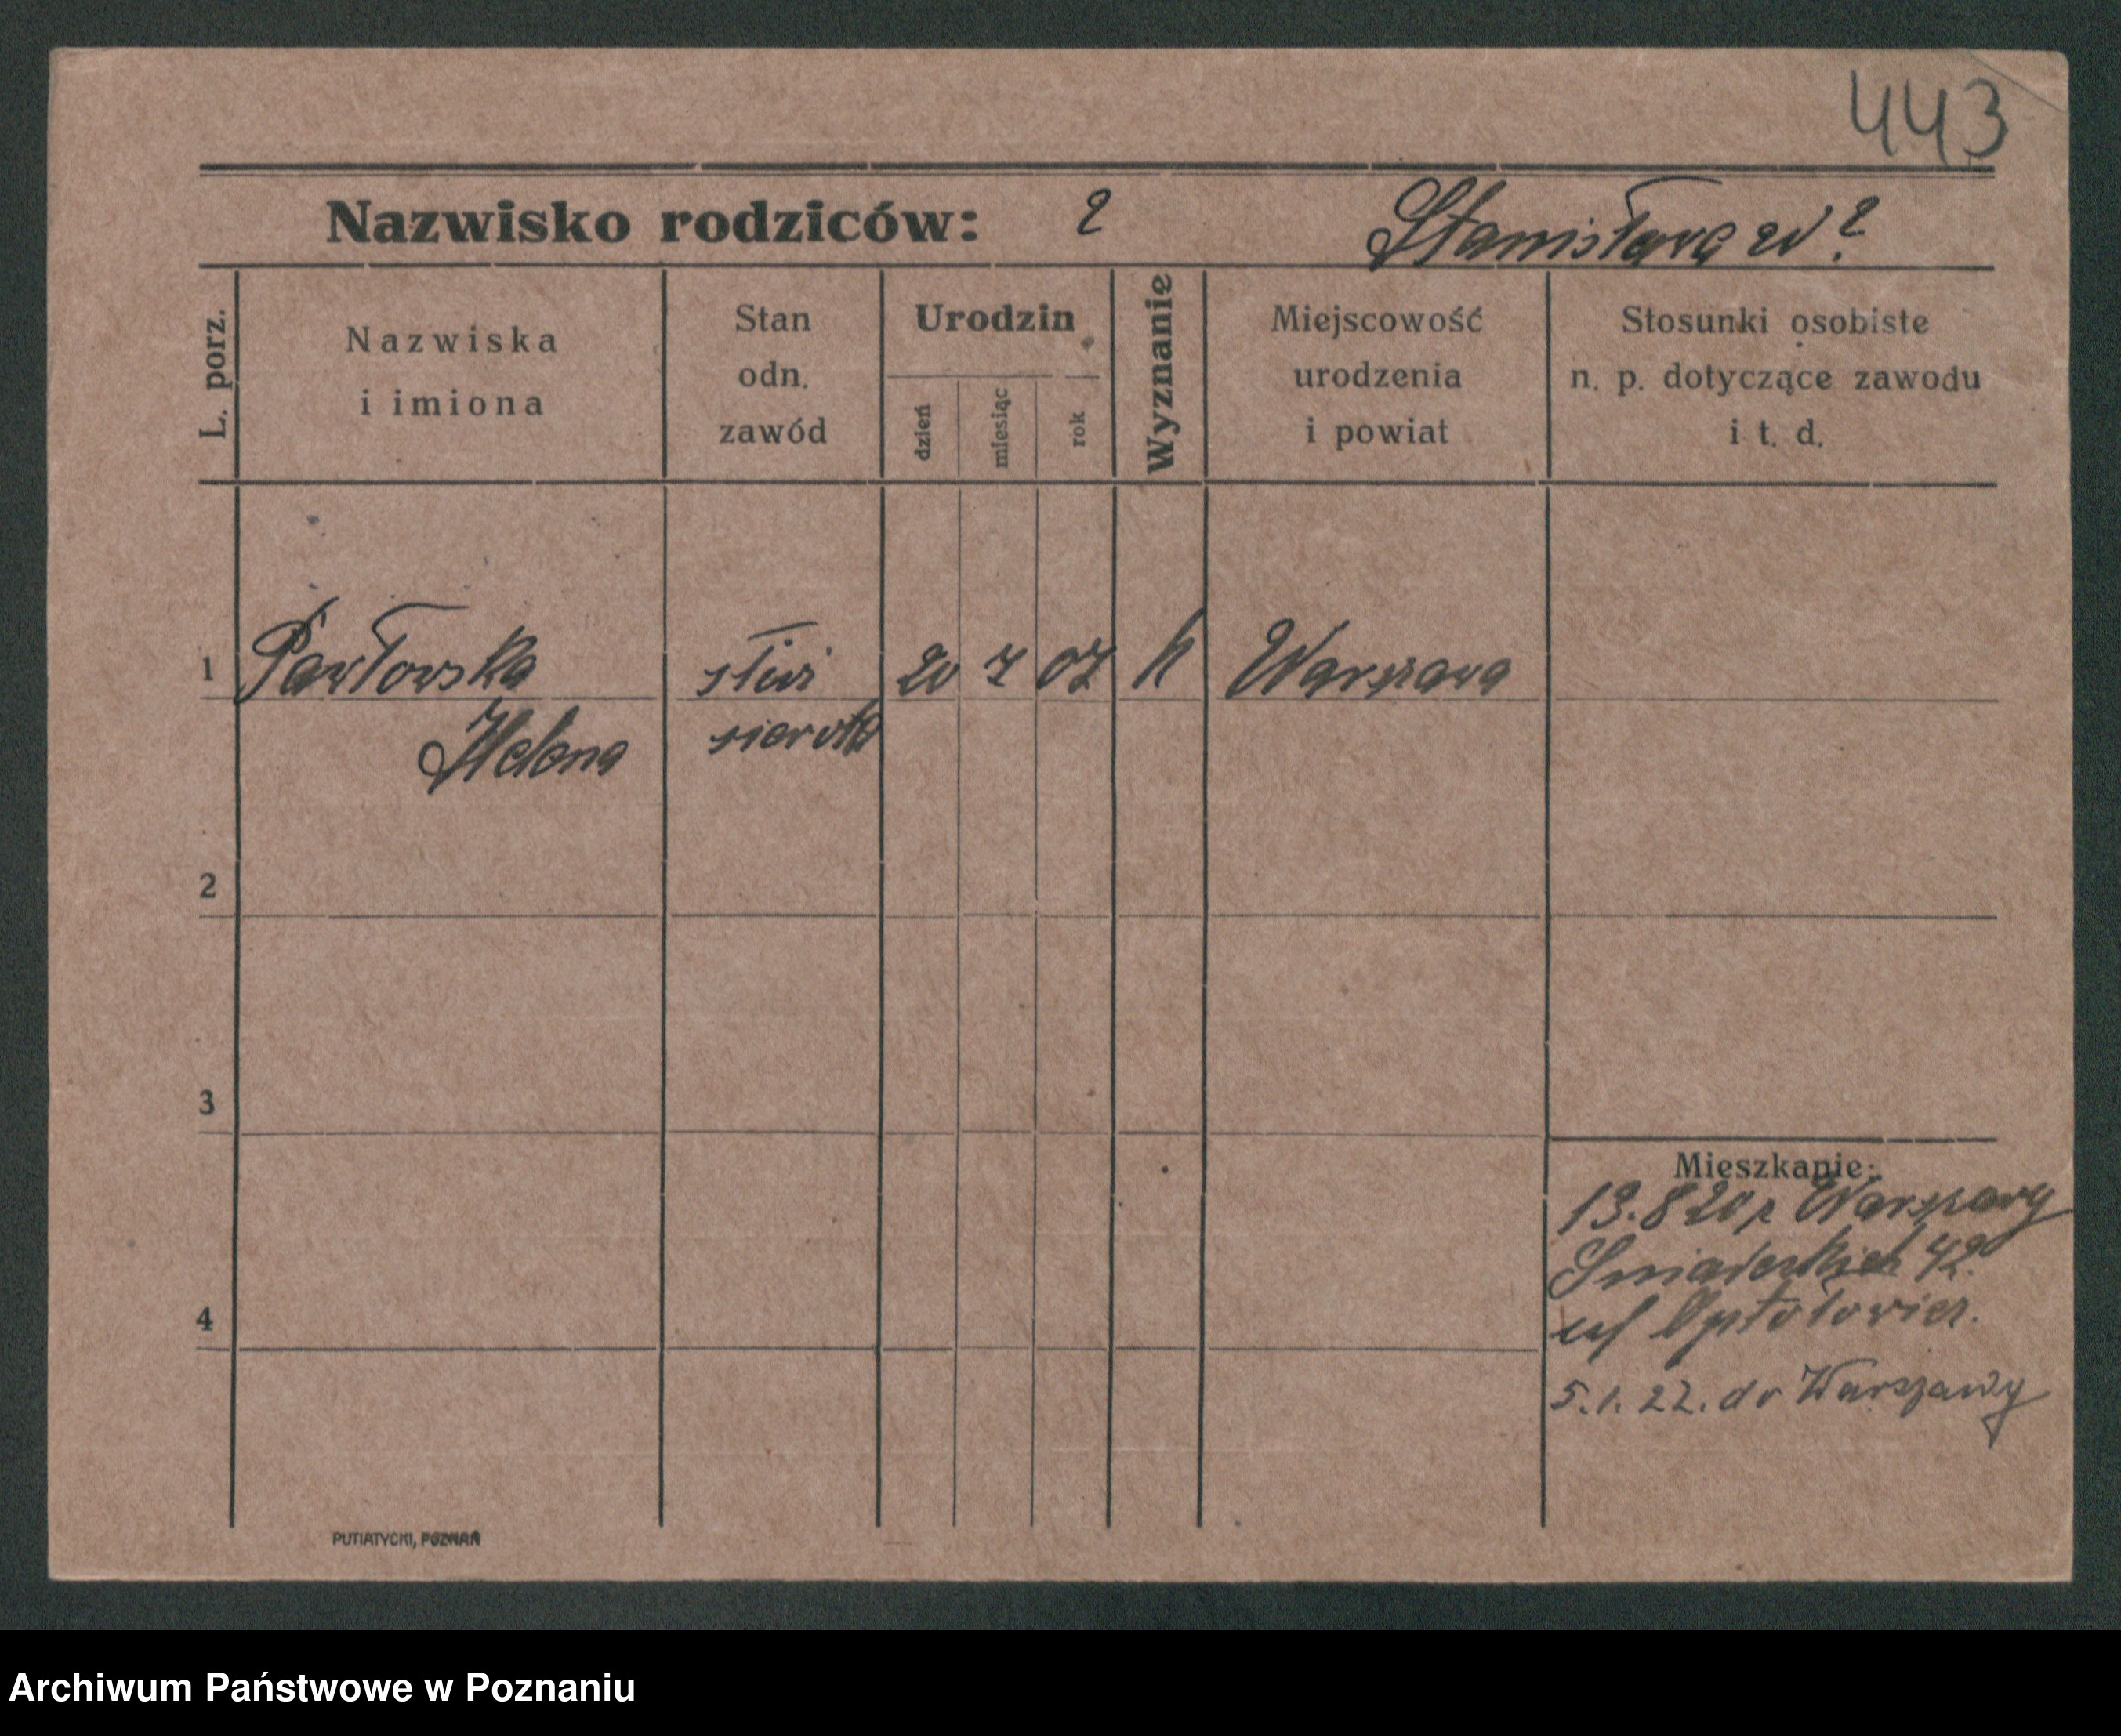 443
Nazwisko rodziców: ? Stanisława ?
L. porz.
Nazwiska
i imiona
Stan
odn.
zawód
Urodzin
dzień
miesiąc
rok
Wyznanie
Miejscowość
urodzenia
i powiat
Stosunki osobiste
n. p. dotyczące zawodu
i t. d.
1 Pawłowska 20 7 07 k Warszawa
Helena sierota
2
3
4
Mieszkanie:
13.8 20 z Warszawy
Śniadeckich
5.1.22. do Warszawy
PUTIATYCKI, POZNAŃ
Archiwum Państwowe w Poznaniu